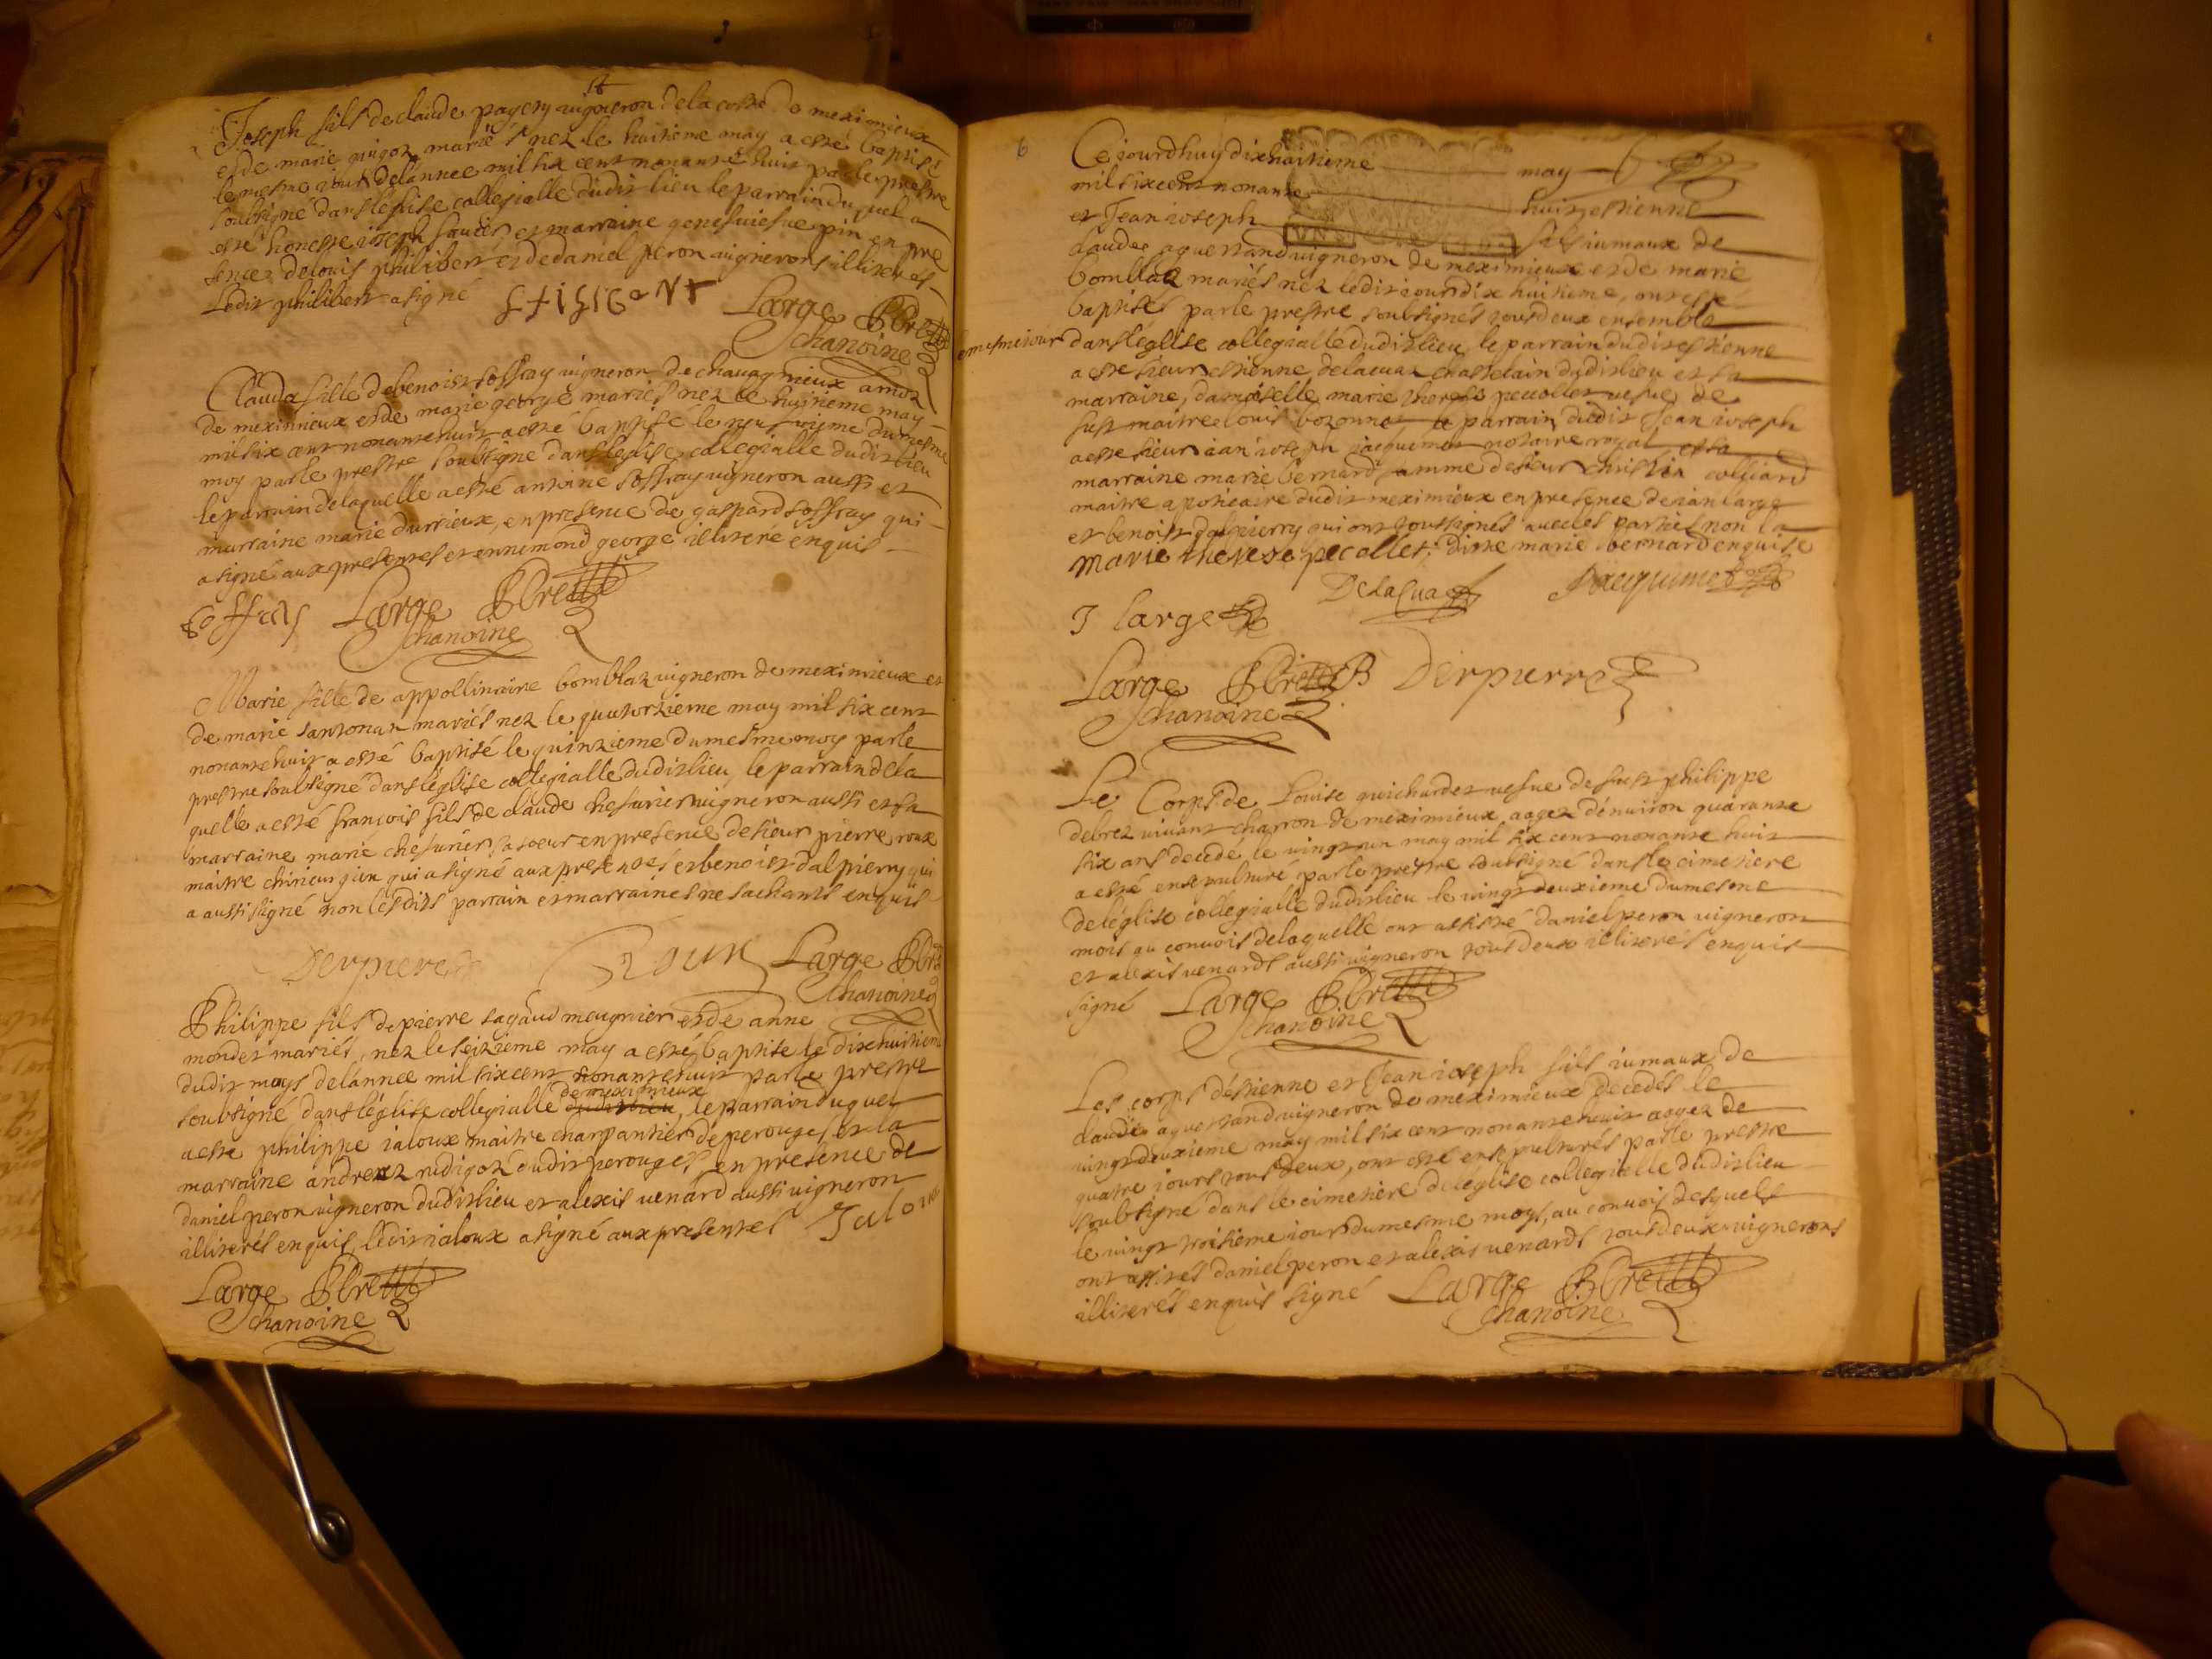 Joseph fils de claude payen vigneron de la coste de meximieux
et de marie mariés nez le huitieme may a esté baptisé
le mesme iour de lannee mil six cent nonante huit par le prestre
soubsigné dans leglise collegialle dudit lieu le parrain duquel a
esté honeste ioseph et marraine geneuiefue pin en pre
sence de louis philibert et de daniel peron vignerons illiteres
Ledit philibert a signé
Large Pbre
chanoine
Clauda fille de benoist soffray vigneron de chauagnieux amoz
de meximieux et de marie george mariés nez le huitieme may
mil six cent nonante huit a esté baptisé le neufuieme du mesme
moy par le prestre soubsigné dans leglise collegialle dudit lieu
le parrain de laquelle a esté antoine soffray vigneron aussi et
marraine marie durrieux, en presence de gaspard soffray qui
a signé aux presentes et ennemond george illiteré enquis
soffray Large Pbre
chanoine
Marie fille de appollinaire bomblaz vigneron de meximieux et
de marie santonax mariés nez le quatorzieme may mil six cent
nonante huit a esté baptisé le quinzieme du mesme moy par le
prestre soubsigné dans leglise collegialle dudit lieu, le parrain de la
quelle a esté françois fils de claude chefurier vigneron aussi et sa
marraine marie chefurier sa soeur en presence de sieur pierre roux
maitre chirurgien qui a signé aux presentes et benoist dalpierry qui
a aussi signé non lesdits parrain et marraine ne sachants enquis
Derpiere Roux Large Pbre
chanoine
Philippe fils de pierre sagaud meugnier et de anne
mondet mariés, nez le seizieme may a esté baptise le dixhuitieme
dudit moys de lannee mil six cent nonante huit par le prestre
soubsigné dans léglise collegialle dudit lieu de meximieux, le parrain duquel
a esté philippe ialoux maitre charpantier de perouges, et la
marraine andreaz rudigoz dudit perouges, en presence de
daniel peron vigneron dudit lieu et alexis venard aussi vigneron
illiterés enquis, ledit ialoux a signé aux presentes Jaloux
Large Pbre
chanoine
6
Ce iourdhuy dixhuitieme may
mil six cent nonante huit estienne
et Jean ioseph fils iumaux de
claude aguettand vigneron de meximieux et de marie
bomblaz mariés nez ledit iour dix huitieme, ont esté
baptisés par le prestre soubsignés tous deux ensemble
le mesme iour dans léglise collegialle dudit lieu, le parrain dudit estienne
a esté sieur estienne delacuaz chastelain dudit lieu et sa
marraine, damoiselle marie therese pecollet vefue de
fust maitre louis bozonnet, le parrain dudit Jean ioseph
a esté sieur iean ioseph jacquemet notaire royal et sa
marraine marie bernard famme de sieur christin colliard
maitre apoticaire dudit meximieux en presence de ian large
et benoist dalpierry qui ont tous signés auec les parties non la
marie therese pecollet, ditte marie bernard enquise
J large Delacua Jacquemet
Large Pbre Derpierre
chanoine
Le Corps de Louise guichardet vefue de fust philippe
debrez viuant charron de meximieux aagez dénuiron quarante
six ans decedé le vingt un may mil six cent nonante huit
a esté ensepulturé par le prestre soubsigné dans le cimetiere
de léglise collegialle dudit lieu le vingt deuxieme du mesme
mois au conuois de laquelle ont assisté daniel peron vigneron
et alexis venards aussi vigneron tous deux illiterés enquis
signé Large Pbre
chanoine
Les corps déstienne et Jean ioseph fils iumaux de
claude aguettand vigneron de meximieux decedés le
vingt deuxieme may mil six cent nonante huit aagez de
quatre iours tous deux, ont esté ensepulturés par le prestre
soubsigné dans le cimetiere de léglise collegialle dudit lieu
le vingt troisieme iour du mesme moys, au conuois desquels
ont assistes daniel peron et alexis venards tous deux vignerons
illiterés enquis signé Large Pbre
chanoine